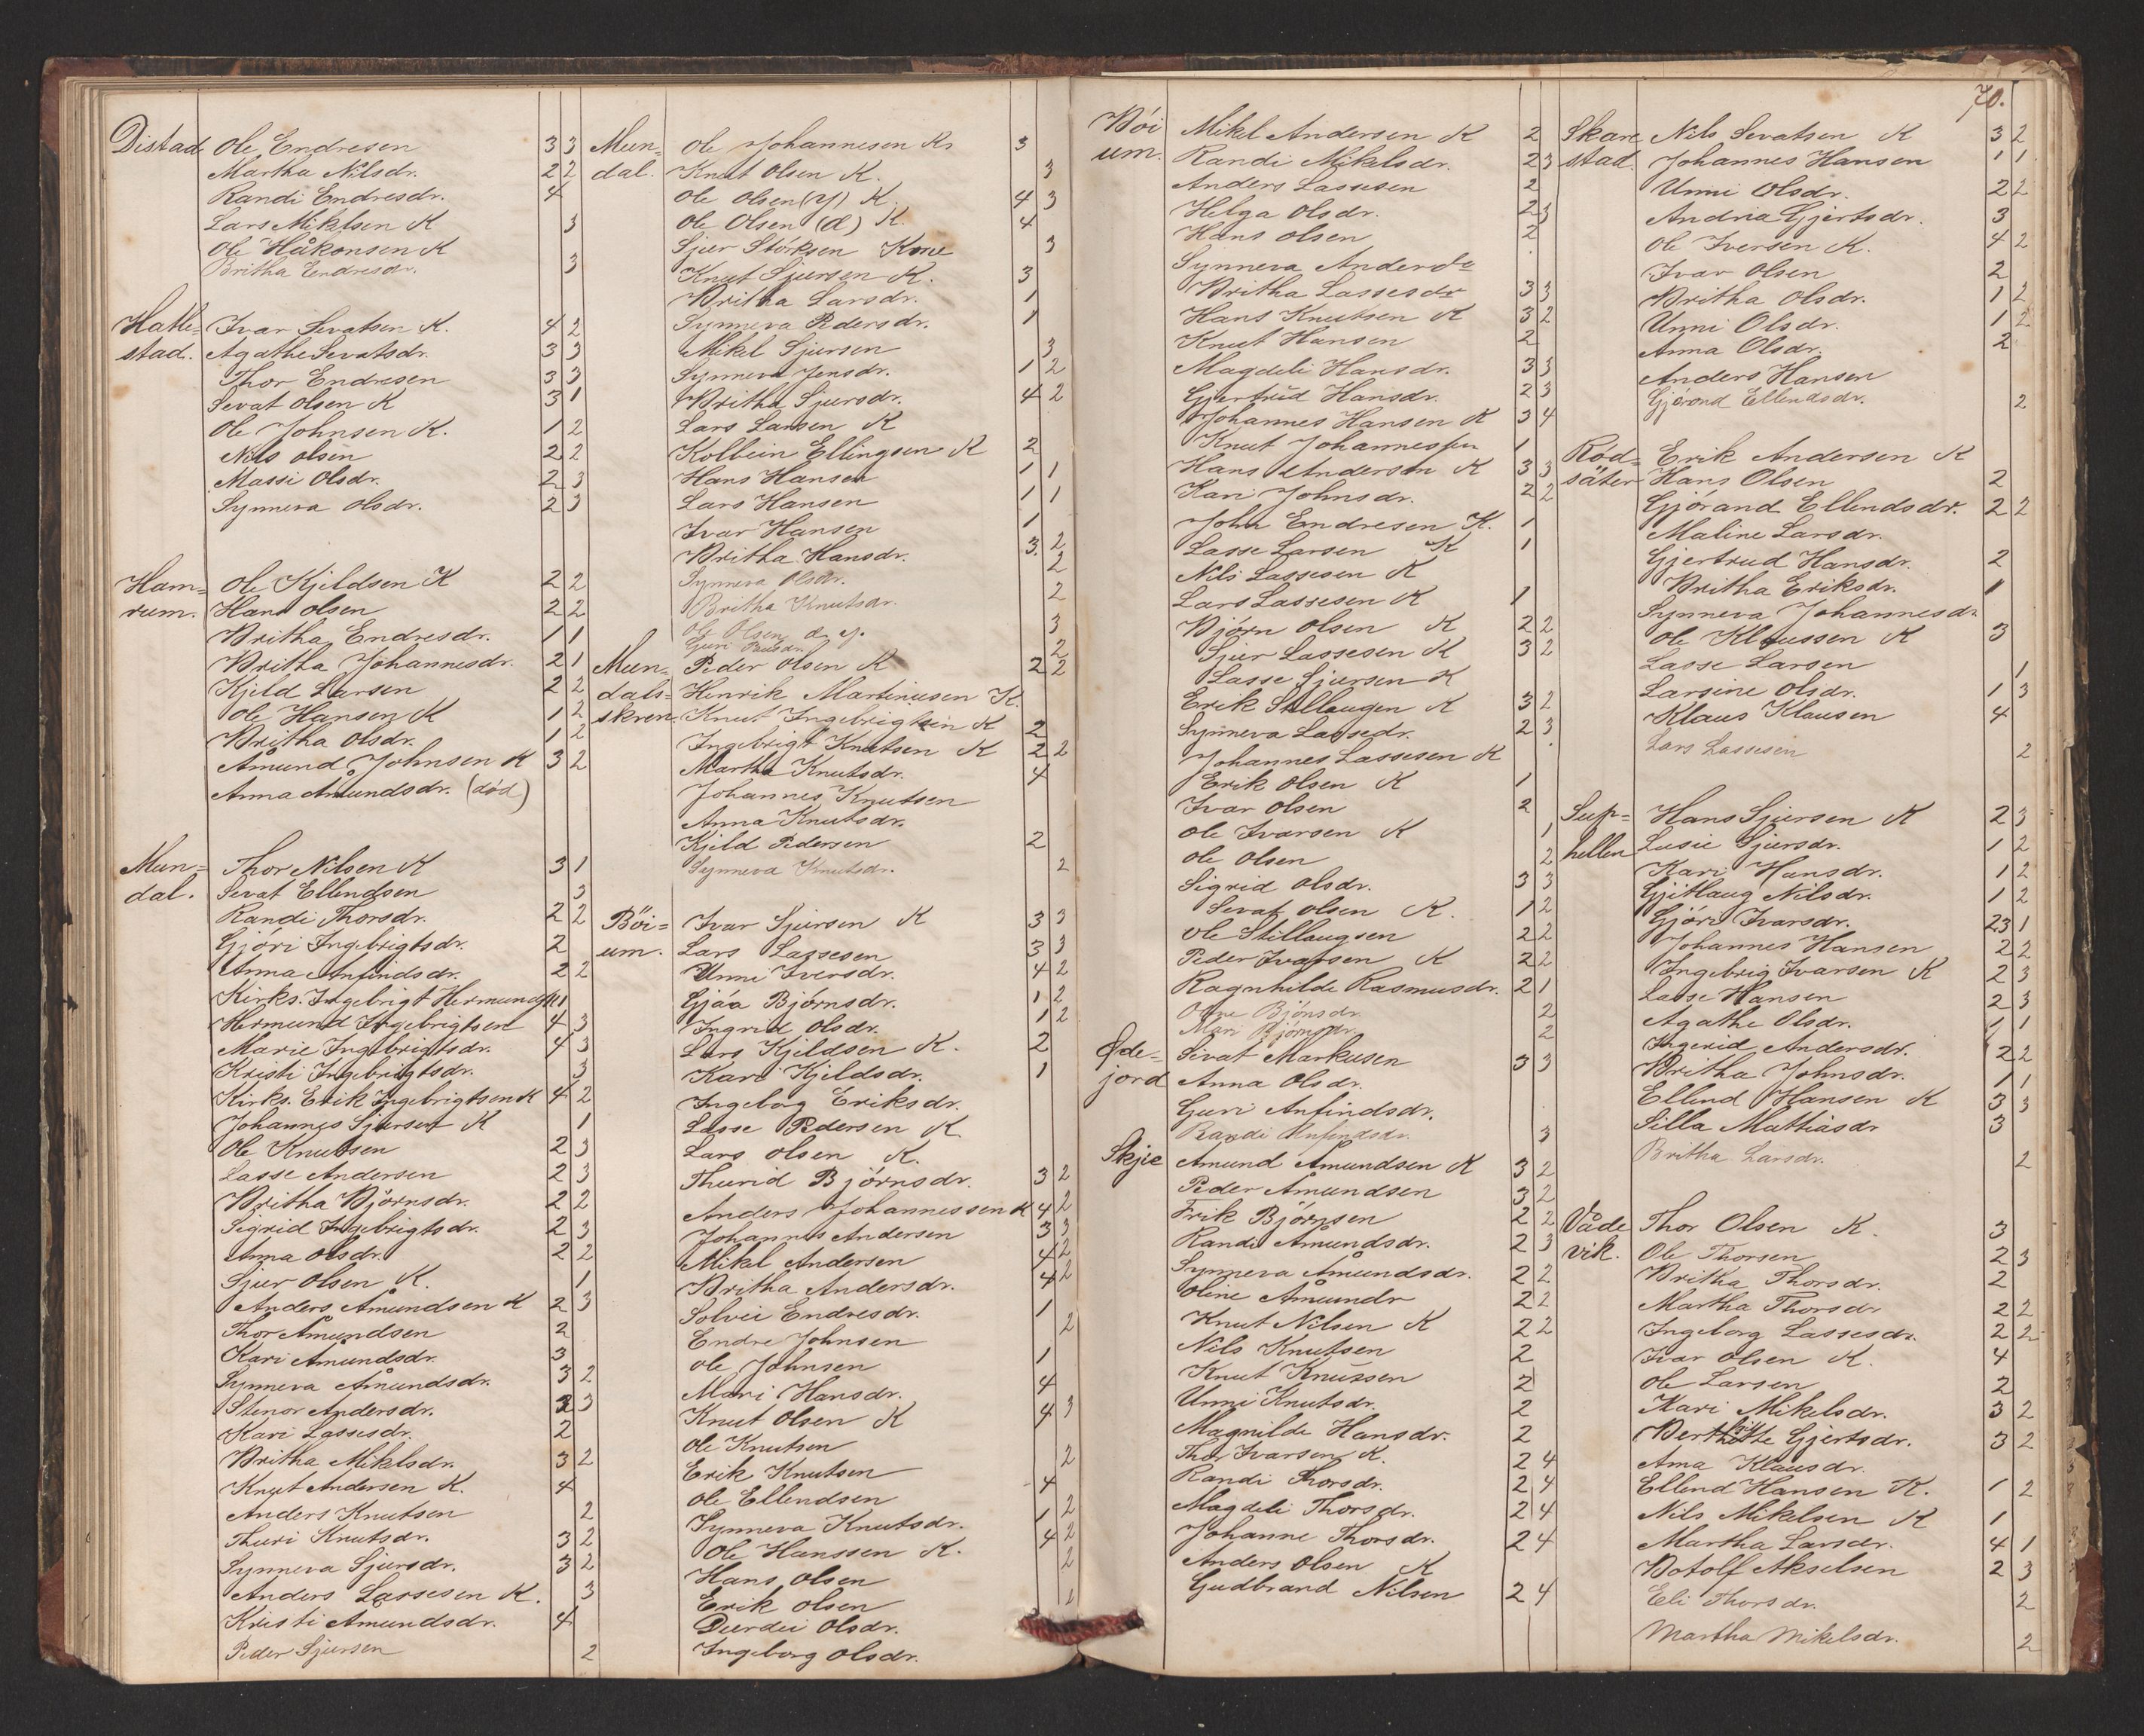 Distad Ole Endresen 3 3
Martha Nilsdr. 2 2
Randi Endresdr. 4
Lars Miklsen K 3
Ole Håkonsen K
Britha Endresdr. 3
Hatle= Ivar Sevatsen K. 4 2
stad. Agathe Sevatsdr. 3 3
Thor Endresen 3 3
Sevat Olsen K 3 1
Ole Johnsen K. 1 2
Nils Olsen 2 2
Massi Olsdr. 2 3
Synneva Olsdr. 2 3
Ham= Ole Kjeldsen K 2 2
rum. Hans Olsen 2 2
Britha Endresdr. 1 1
Britha Johannesdr. 2 1
Kjeld Larsen 2 2
Ole Hansen K 1 2
Britha Olsdr. 1 2
Åmund Johnsen K 3 2
Anna Åmundsdr. (død)
Mun= Thor Nilsen K 3 1
dal. Sevat Ellendsen 3
Randi Thorsdr. 2 2
Gjöri Ingebrigtsdr. 2
Anna Anfindsdr. 2 2
Kirks. Ingebrigt Hermundsn 1
Hermund Ingebrigtsen 4 3
Marie Ingebrigtsdr. 4 3
Kristi Ingebrigtsdr. 3
Kirks. Erik Ingebrigtsen K 4 2
Johannes Sjursen K 1
Ole Knutsen 2 3
Lasse Andersen 2 3
Britha Björnsdr. 2 2
Sigrid Ingebrigtsdr. 2 3
Anna Olsdr. 2 2
Sjur Olsen K. 1
Anders Åmundsen K 2 3
Thor Åmundsen 2
Kari Åmundsdr. 3
Synneva Åmundsdr. 3 2
Stenor Andersdr. 2 3
Kari Lassesdr. 2
Britha Miklsdr. 3 2
Knut Andersen K. 4
Anders Knutsen 2
Thuri Knutsdr. 3 2
Synneva Sjursdr. 3 2
Anders Lassesen K. 3
Kristi Amundsdr. 4
Peder Sjursen 2
Mun= Ole Johannesen K 3
dal. Knut Olsen K. 3
Ole Olsen (y) K. 4 3
Ole Olsen (d) K. 4
Sjur Störksen Kone 3
Knut Sjursen K. 3
Britha Larsdr. 1
Synneva Pedersdr. 1
Mikel Sjursen 3
Synneva Jensdr. 1 2
Britha Sjursdr. 4 2
Lars Larsen K
Kolbein Ellingsen K 2
Hans Hansen 1 1
Lars Hansen 1 1
Ivar Hansen 1
Britha Hansdr. 3. 2
Synneva Olsdr. 2
Britha Knutsdr. 2
Ole Olsen d. y. 3
Guri 2
Mun= Peder Olsen K 2 2
dals= Henrik Martinusen K.
skren. Knut Ingebrigtsen K 2
Ingebrigt Knutsen K 2 2
Martha Knutsdr. 4
Johannes Knutsen
Anna Knutsdr.
Kjeld Pedersen 2
Synneva Knutsdr. 2
Böi= Ivar Sjursen K 3 3
um. Lars Lassesen 3 3
Unni Iversdr. 4 2
Gjöa Björnsdr. 1 2
Ingrid Olsdr. 1 2
Lars Kjeldsen K. 2
Kari Kjeldsdr. 1
Ingeborg Eriksdr.
Lasse Pedersen K
Lars Olsen K.
Thurid Björnsdr. 3 2
Anders Johannessen K 4 2
Johannes Andersen 3 3
Mikel Andersen 4 2
Britha Andersdr. 4 2
Solvei Endresdr. 1
Endre Johnsen 2
Ole Johnsen 1
Mari Hansdr. 4
Knut Olsen K 4 3
Ole Knutsen
Erik Knutsen 2
Ole Ellendsen 4
Synneva Knutsdr. 1 2
Ole Hanssen K. 4 2
Hans Olsen 2
Erik Olsen 1
Durdei Olsdr.
Ingeborg Olsdr.
70.
Böi Mikel Andersen K 2
um. Randi Mikelsdr. 2 3
Anders Lassesen 2
Helga Olsdr. 2 3
Hans Olsen 2
Synneva Andersdr
Britha Lassesdr 3 3
Hans Knutsen K 3 2
Knut Hansen 2
Magdeli Hansdr. 3 3
Gjertrud Hansdr. 2 3
Johannes Hansen K 3 4
Knut Johannessen 1
Hans Andersen K 3 3
Kari Johnsdr. 2 2
John Endresen K. 1
Lasse Larsen K 1
Nils Lassesen K
Lars Lassesen K 1
Björn Olsen K 2 2
Sjur Lassesen K 3 2
Lasse Sjursen K
Erik Stellaugen K 3 2
Synneva Lassedr. 2 3
Johannes Lassesen K
Erik Olsen K 1
Ivar Olsen 2
Ole Ivarsen K 1
Ole Olsen 2
Sigrid Olsdr. 3 3
Sevat Olsen K. 1 2
Ole Stillaugsen 2 2
Peder Ivarsen K 2 2
Ragnhilde Rasmusdr. 2 1
Björnsdr 2
Mari Björnsdr 2
Øde= Sivat Markusen 3 3
jord Anna Olsdr.
Guri Anfindsdr.
Randi Anfindsdr. 3
Skjee Amund Amundsen K 3 2
Peder Åmundsen 3 2
Erik Björnsen 2 2
Randi Åmundsdr. 2 3
Synneva Åmundsdr. 2 2
Oline Åmundr 2 2
Knut Nilsen K 2 2
Nils Knutsen 2
Knut Knutsen 2
Unni Knutsdr. 2
Magnilde Hansdr. 2
Thor Ivarsen K. 2 4
Randi Thorsdr. 2 4
Magdeli Thorsdr. 2 4
Johanne Thorsdr. 2 4
Anders Olsen K
Gudbrand Nilsen 2 4
Skare Nils Sevatsen K 3 2
stad. Johannes Hansen 1 1
Unni Olsdr. 2 2
Andria Gjertsdr. 3
Ole Iversen K. 4 2
Ivar Olsen 2
Britha Olsdr. 1 2
Unni Olsdr. 1 2
Anna Olsdr. 2
Anders Hansen
Gjörond Ellendsdr. 2
Röd= Erik Andersen K
säter Hans Olsen 2
Gjörand Ellendsdr. 2 2
Maline Larsdr.
Gjertrud Hansdr. 2
Britha Eriksdr. 1
Synneva Johannesdr.
Ole Klaussen K 3
Lasse Larsen 1
Larsine Olsdr. 1 3
Klaus Klausen 4
Lars Lassesen 2
Sup= Hans Sjursen K 2 3
hellen Lusie Sjursdr. 1 2
Kari Hansdr. 1 2
Gjitlaug Nilsdr. 1 2
Gjöri Ivarsdr. 23 1
Johannes Hansen 2 2
Ingebrig Ivarsen K 2 3
Lasse Hansen 2 3
Agathe Olsdr. 1 1
Ingerid Andersdr. 2 2
Britha Johnsdr. 1 1
Ellend Hansen K 3 3
Silla Mathiasdr 3
Britha Larsdr. 2
Våde Thor Olsen K. 3
vik. Ole Thorsen 2 3
Britha Thorsdr. 2
Martha Thorsdr 2 2
Ingeborg Lassesdr. 2 2
Ivar Olsen K. 4
Ole Larsen 2
Kari Mikelsdr. 3 2
Gjertsdr. 3 2
Anna Klausdr.
Ellend Hansen K. 1 2
Nils Mikelsen K 1
Martha Larsdr. 4 1
Botolf Akselsen 2 3
Eli Thorsdr. 2
Martha Mikelsdr. 2